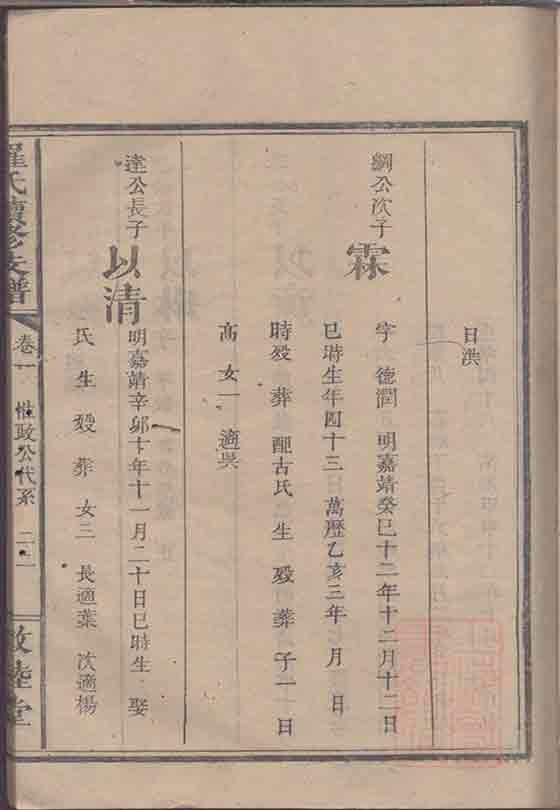 日洪
綱公次子
霖
字 德潤 明嘉靖癸巳十二年十二月十二日
巳時生年四十三 萬歷乙亥三年七月 日
時歿 葬 配古氏 生 歿 葬 子一 日
高 女一 適吳
達公長子
以清
明嘉靖辛卯十年十一月二十日巳時生 娶
氏 生 歿 葬 女三 長適葉 次適楊
羅氏續修支譜
卷一
惟政公代系
敦睦堂